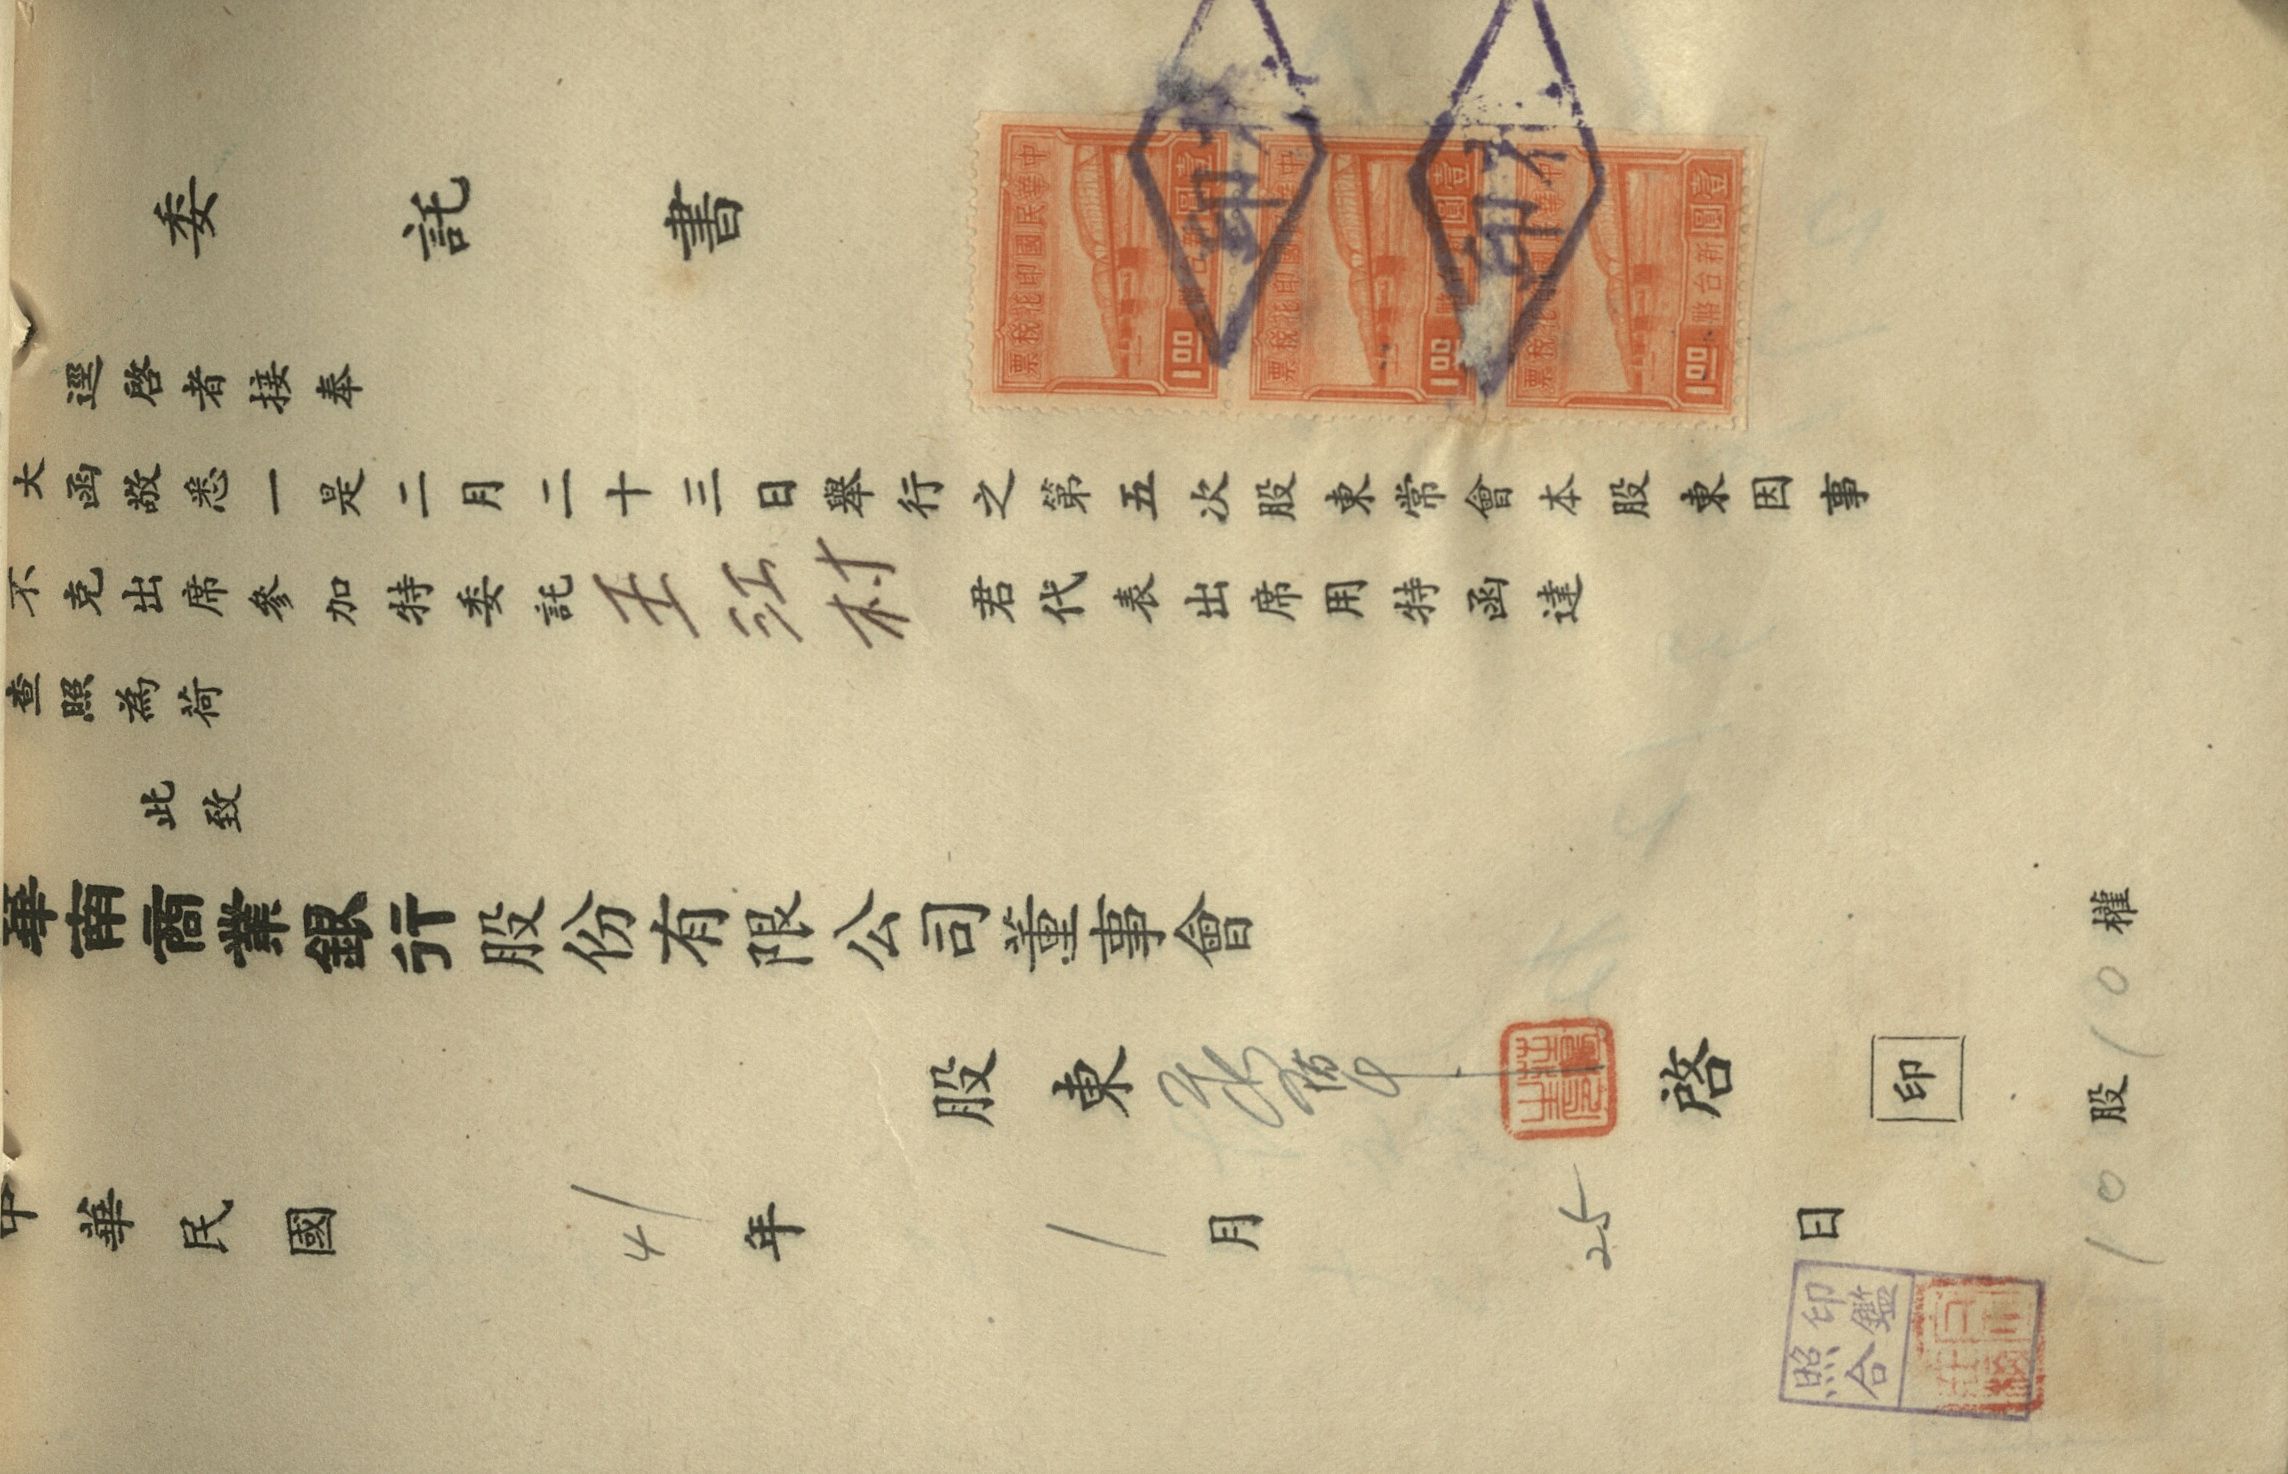 委託書
逕啓者接奉
大函敬悉一是二月二十三日舉行之第五次股東常會本股東因事
不克出席參加特委託王江村君代表出席用特函達
查照為荷
此致
華南商業銀行股份有限公司董事會
股東 啓 印
10股10權
中華民國41年1月25日
中華民國印花稅票
壹圓
新台幣
1.00
中華民國印花稅票
壹圓
1.00
壹圓
新台幣
1.00
印鑑
照合